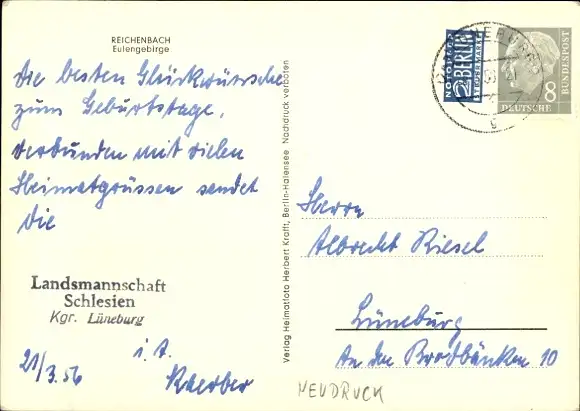 REICHENBACH
Eulengebirge
Die besten Glückwünsche
zum Geburtstage,
verbunden mit vielen
Heimatgrüssen sendet
die
Landsmannschaft
Schlesien
Kgr. Lüneburg
21/3.56
i. A.
Verlag Heimatfoto Herbert Krafft, Berlin-Halensee Nachdruck verboten
NOTOPFER
2 BERLIN
STEUERMARKE
DEUTSCHE
BUNDESPOST
8
Herrn
Albrecht Riesel
Lüneburg
An den Brodbänken 10
NEUDRUCK